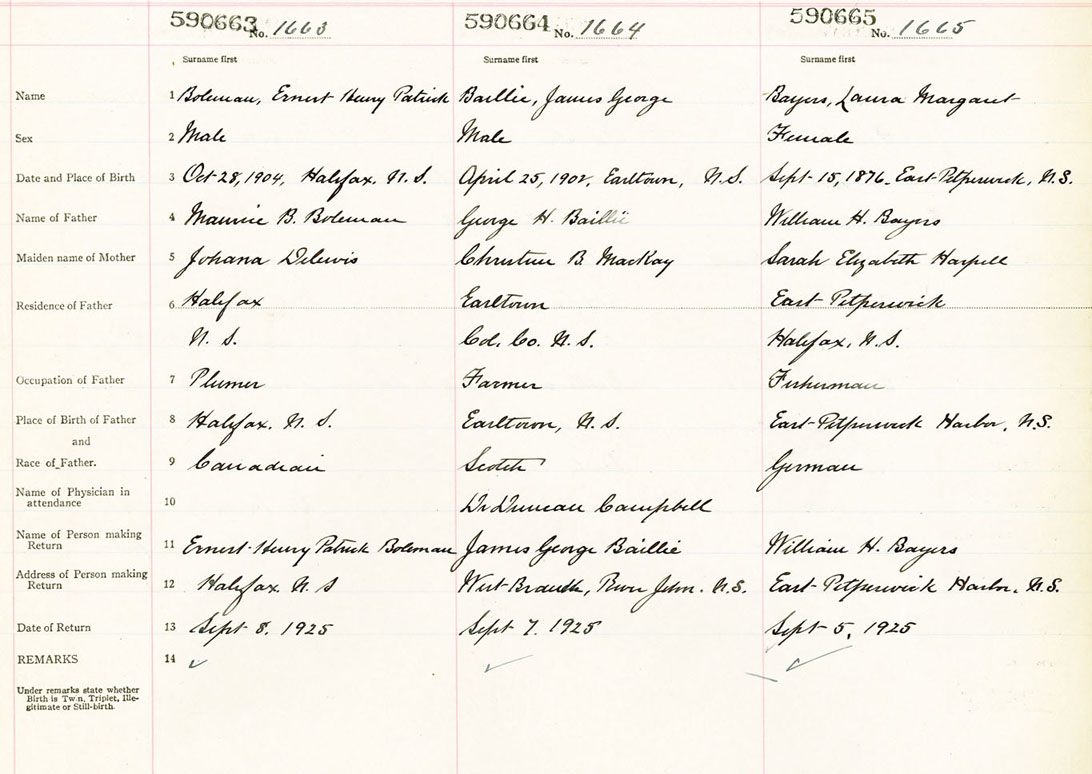 590663 No. 1663 590664 No. 1664 590665 No. 1665
Surname first Surname first Surname first
Name 1 Boleman, Ernest Henry Patrick Baillie, James George Bayers, Laura Margaret
Sex 2 Male Male Female
Date and Place of Birth 3 Oct 28, 1904, Halifax, N. S. April 25, 1902, Earltown, N. S. Sept 15, 1876. East Petpeswick, N.S.
Name of Father 4 Maurice B. Boleman George H. Baillie William H. Bayers
Maiden name of Mother 5 Johana Delewis Christine B. MacKay Sarah Elizabeth Harpell
Residence of Father 6 Halifax Earltown East Petpeswick
N. S. Col. Co. N. S. Halifax, N. S.
Occupation of Father 7 Plumer Farmer Fisherman
Place of Birth of Father 8 Halifax. N. S. Earltown, N. S. East Petpeswick Harbor, N.S.
and
Race of Father. 9 Canadian Scotch German
Name of Physician in
attendance 10 Dr Duncan Campbell
Name of Person making
Return 11 Ernest Henry Patrick Boleman James George Baillie William H. Bayers
Address of Person making
Return 12 Halifax N. S West Branch, River John. N.S. East Petpeswick Harbor, N.S.
Date of Return 13 Sept 8. 1925 Sept 7. 1925 Sept 5, 1925
REMARKS 14 ✓ ✓ ✓
Under remarks state whether
Birth is Twn, Triplet, Ille-
gitimate or Still-birth.